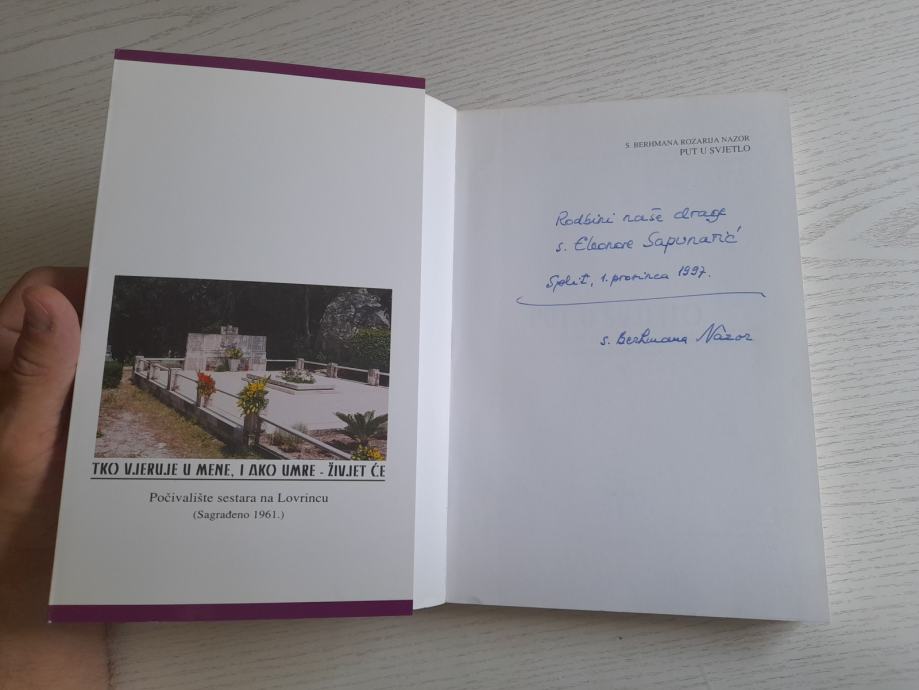 TKO VJERUJE U MENE, I AKO UMRE - ŽIVJET ĆE
Počivalište sestara na Lovrincu
(Sagrađeno 1961.)
S. BERHMANA ROZARIJA NAZOR
PUT U SVJETLO
Rodbini naše drage
s. Eleonore Sapunarić
Split, 1. prosinca 1997.
s. Berhmana Nazor